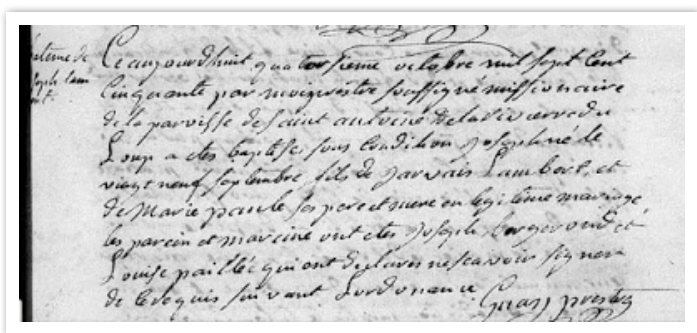 batême de
joseph lam
bert.
Ce aujourdhuit quatorsieme octobre mil sept Cent
Cinquante par moy prestre soussigné missionaire
de la paroisse de saint antoine de la riviere du
Loup a etes baptise sous Condition joseph né le
vingt neuf septembre, fils de jarvais Lambert, et
de Marie paule ses pere et mere en legitime mariage
les parein et mareine ont etes joseph bergeround et
Louise paillée qui ont declares ne scavoir signer
de ce requis suivant Lordonance
prestre